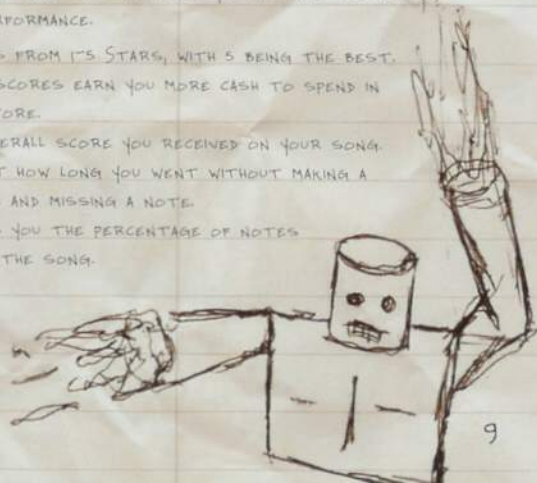 FORMANCE.
S FROM 1-5 STARS, WITH 5 BEING THE BEST.
SCORES EARN YOU MORE CASH TO SPEND IN
ORE.
ERALL SCORE YOU RECEIVED ON YOUR SONG.
T HOW LONG YOU WENT WITHOUT MAKING A
AND MISSING A NOTE.
YOU THE PERCENTAGE OF NOTES
THE SONG.
9